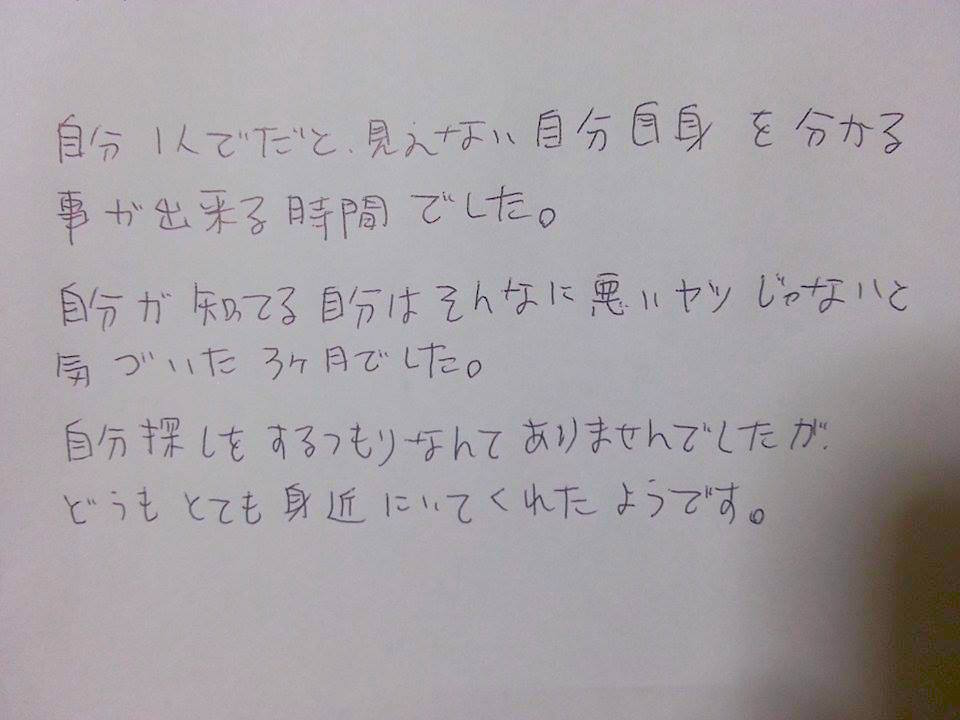 自分1人でだと、見えない自分自身を分かる
事が出来る時間でした。
自分が知ってる自分はそんなに悪いヤツじゃないと
気づいた3ヶ月でした。
自分探しをするつもりなんてありませんでしたが、
どうもとても身近にいてくれたようです。